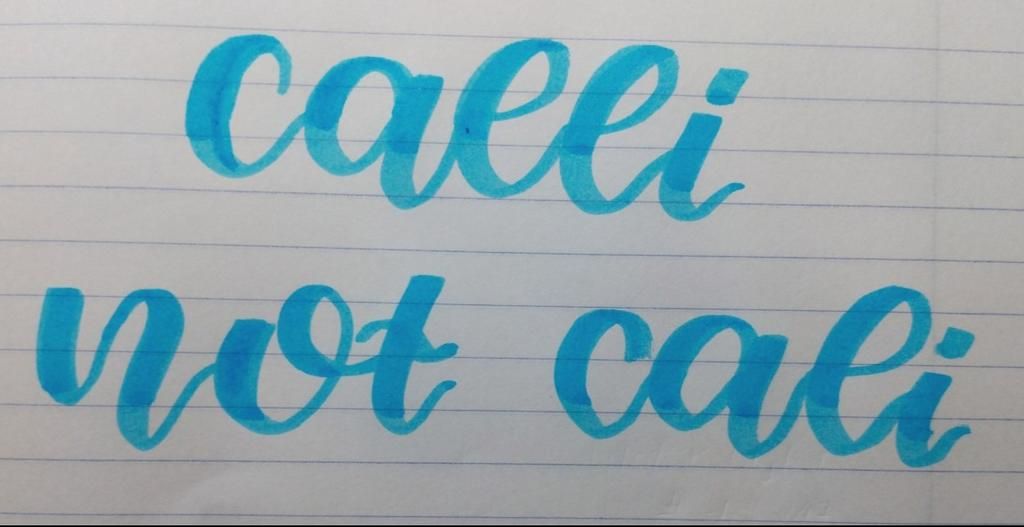 calli
not cali